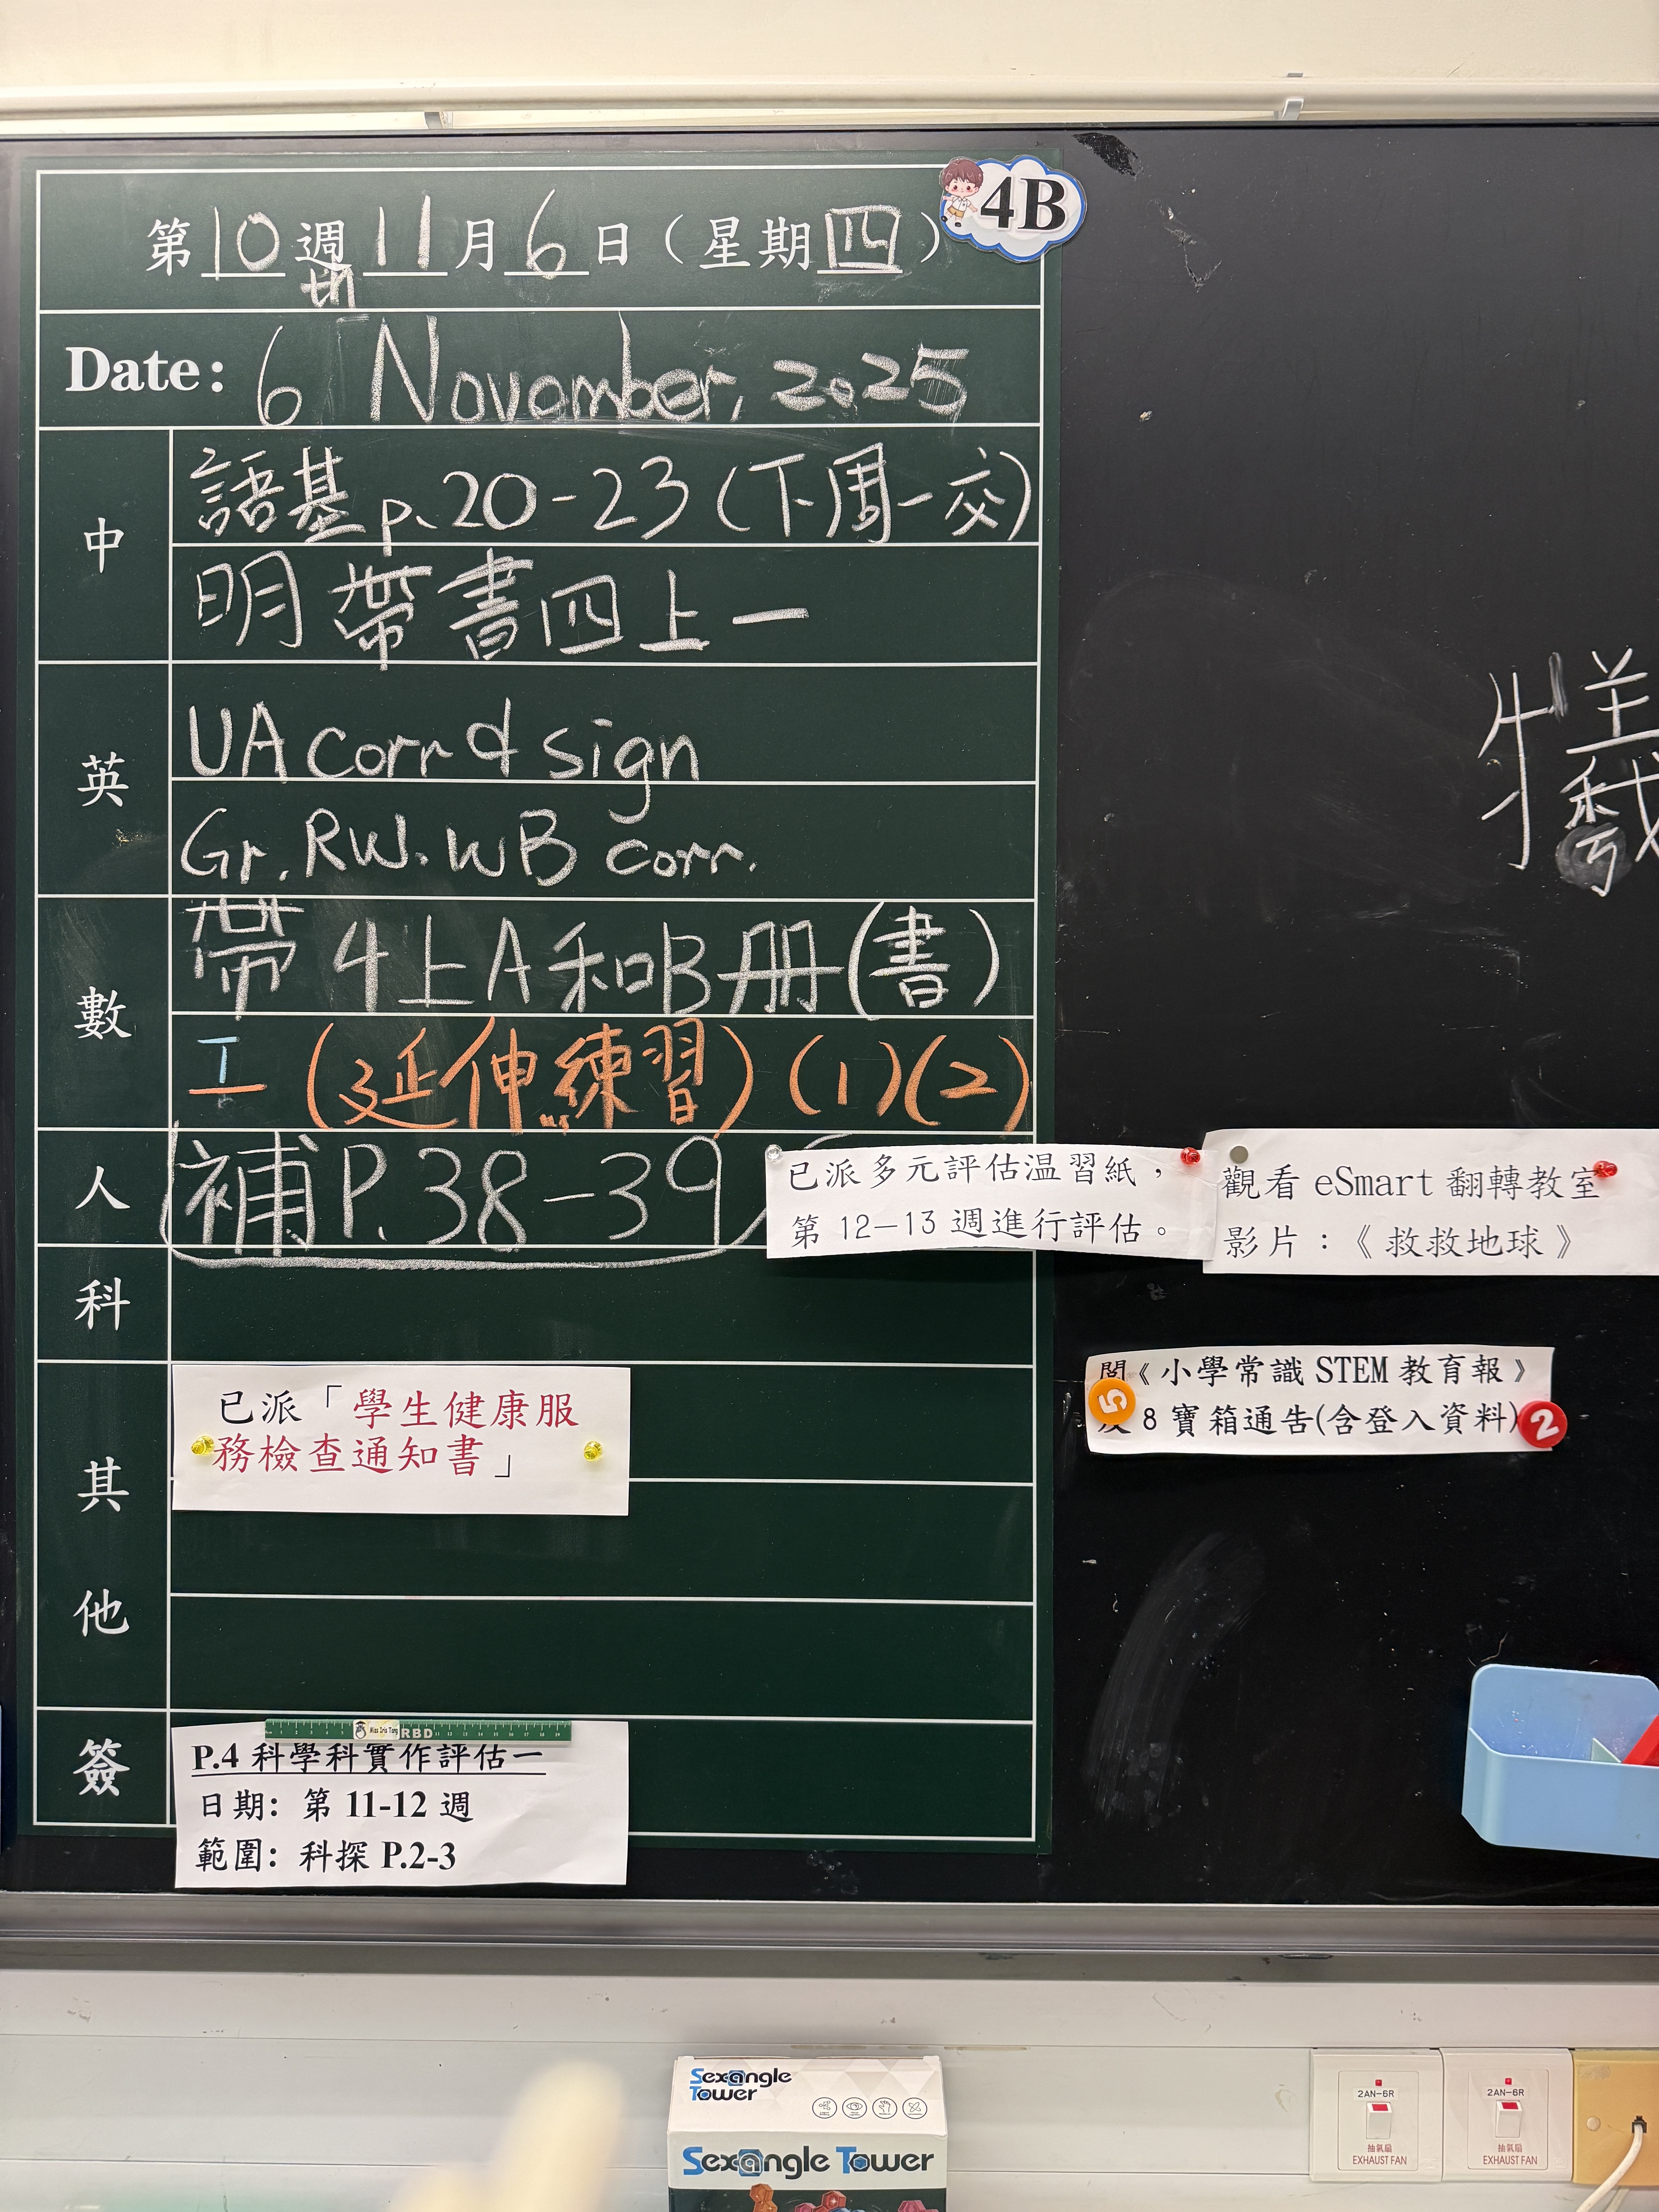 4B
第10週 11月6日（星期四）
Date: 6 November, 2025
中
語基 p.20-23(下周一交)
明帶書四上一
英
UA corr & sign
Gr. RW. WB corr.
數
帶4上A和B冊(書)
工 (延伸練習) (1)(2)
人
補 P.38-39
已派多元評估温習紙，
第 12–13 週進行評估。
觀看 eSmart 翻轉教室
影片：《救救地球》
科
閱《小學常識 STEM 教育報》
5
8 寶箱通告(含登入資料)
2
其
他
已派「學生健康服
務檢查通知書」
簽
Miss Iris Tang
RBD
P.4 科學科實作評估一
日期: 第 11-12 週
範圍: 科探 P.2-3
犧
Sexangle
Tower
Sexangle Tower
2AN-6R
抽氣扇
EXHAUST FAN
2AN-6R
抽氣扇
EXHAUST FAN